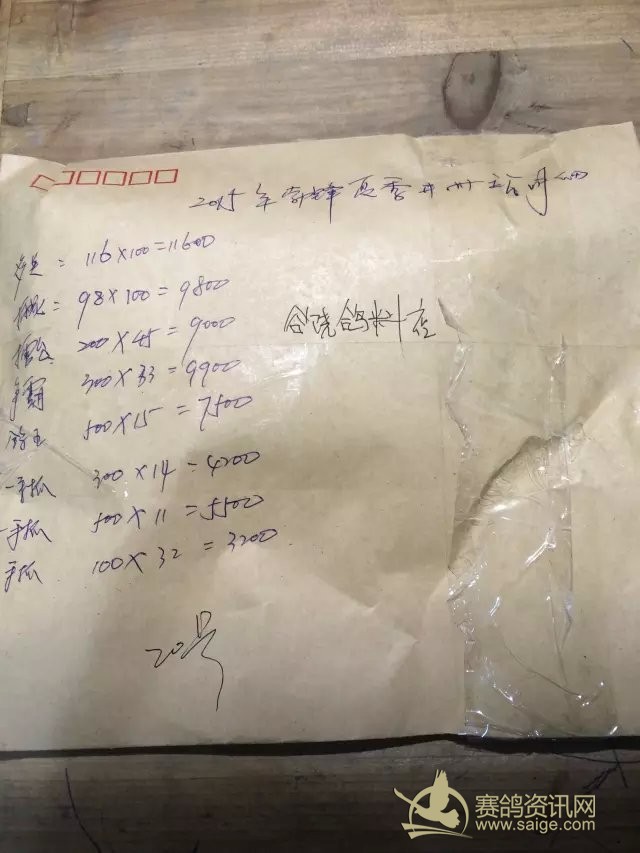 2015年 夏季
116×100=11600
98×100=9800
200×45=9000
鸽料店
300×33=9900
500×15=7500
一手抓 300×14=4200
一手抓 500×11=5500
手抓 100×32=3200
20号
赛鸽资讯网
www.saige.com